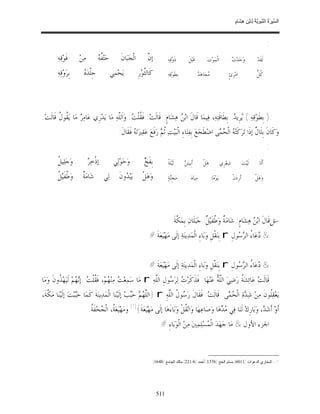 السيرة النبوية لابن هشام
لَقَدْ وَجَدْتُ الْمَوْتَ قَبْلَ ذَوْقِهِ إنَّ الْجَبَانَ حَتْفُهُ مِنْ فَوْقِهِ
كُلُّ امْرِئٍ مُجَاهَدٌ بِطَوْقِهِ كَالثَّوْرِ يَحْمِي جِلْدَهُ بِرَوْقِهِ
( بِطَوْقِهِ ) يُرِيدُ: بِطَاقَتِهِ، فِيمَا قَالَ ابْنُ هِشَامٍ: قَالَتْ: فَقُلْتُ: وَاَللَّهِ مَا يَدْرِي عَامِرٌ مَا يَقُولُ قَالَتْ:
وَكَانَ بِلَالٌ إذَا تَرَكَتْهُ الْحُمَّى اضْطَجَعَ بِفِنَاءِ الْبَيْتِ ثُمَّ رَفَعَ عَقِيرَتَهُ فَقَالَ:
أَلَا لَيْتَ شِعْرِي هَلْ أَبِيتَنَّ لَيْلَةً بِفَخٍّ وَحَوْلِي إذْخِرٌ وَجَلِيلُ
وَهَلْ أَرِدَنْ يَوْمًا مِيَاهَ مَجَنَّةٍ وَهَلْ يَبْدُوَنْ لِي شَامَةٌ وَطَفِيلُ
قَالَ ابْنُ هِشَامٍ: شَامَةٌ وَطَفِيلٌ: جَبَلَانِ بِمَكَّةَ.
دُعَاءُ الرَّسُولِ بِنَقْلِ وَبَاءِ الْمَدِينَةِ إلَى مَهْيَعَةَ #
دُعَاءُ الرَّسُولِ بِنَقْلِ وَبَاءِ الْمَدِينَةِ إلَى مَهْيَعَةَ #
قَالَتْ عَائِشَةُ رَضِيَ اللَّهُ عَنْهَا: فَذَكَرْتُ لِرَسُولِ اللَّهِ مَا سَمِعْتُ مِنْهُمْ، فَقُلْتُ: إنَّهُمْ لَيَهْذُونَ وَمَا
يَعْقِلُونَ مِنْ شِدَّةِ الْحُمَّى. قَالَتْ: فَقَالَ رَسُولُ اللَّهِ (اللَّهُمَّ حَبِّبْ إلَيْنَا الْمَدِينَةَ كَمَا حَبَّبْتَ إلَيْنَا مَكَّةَ،
أَوْ أَشَدَّ، وَبَارِكْ لَنَا فِي مُدِّهَا وَصَاعِهَا وَانْقُلْ وَبَاءَهَا إلَى مَهْيَعَةَ) وَمَهْيَعَةُ: الْجُحْفَةُ
الجزء الأول مَا جَهَدَ الْمُسْلِمِينَ مِنْ الْوَبَاءِ #
511